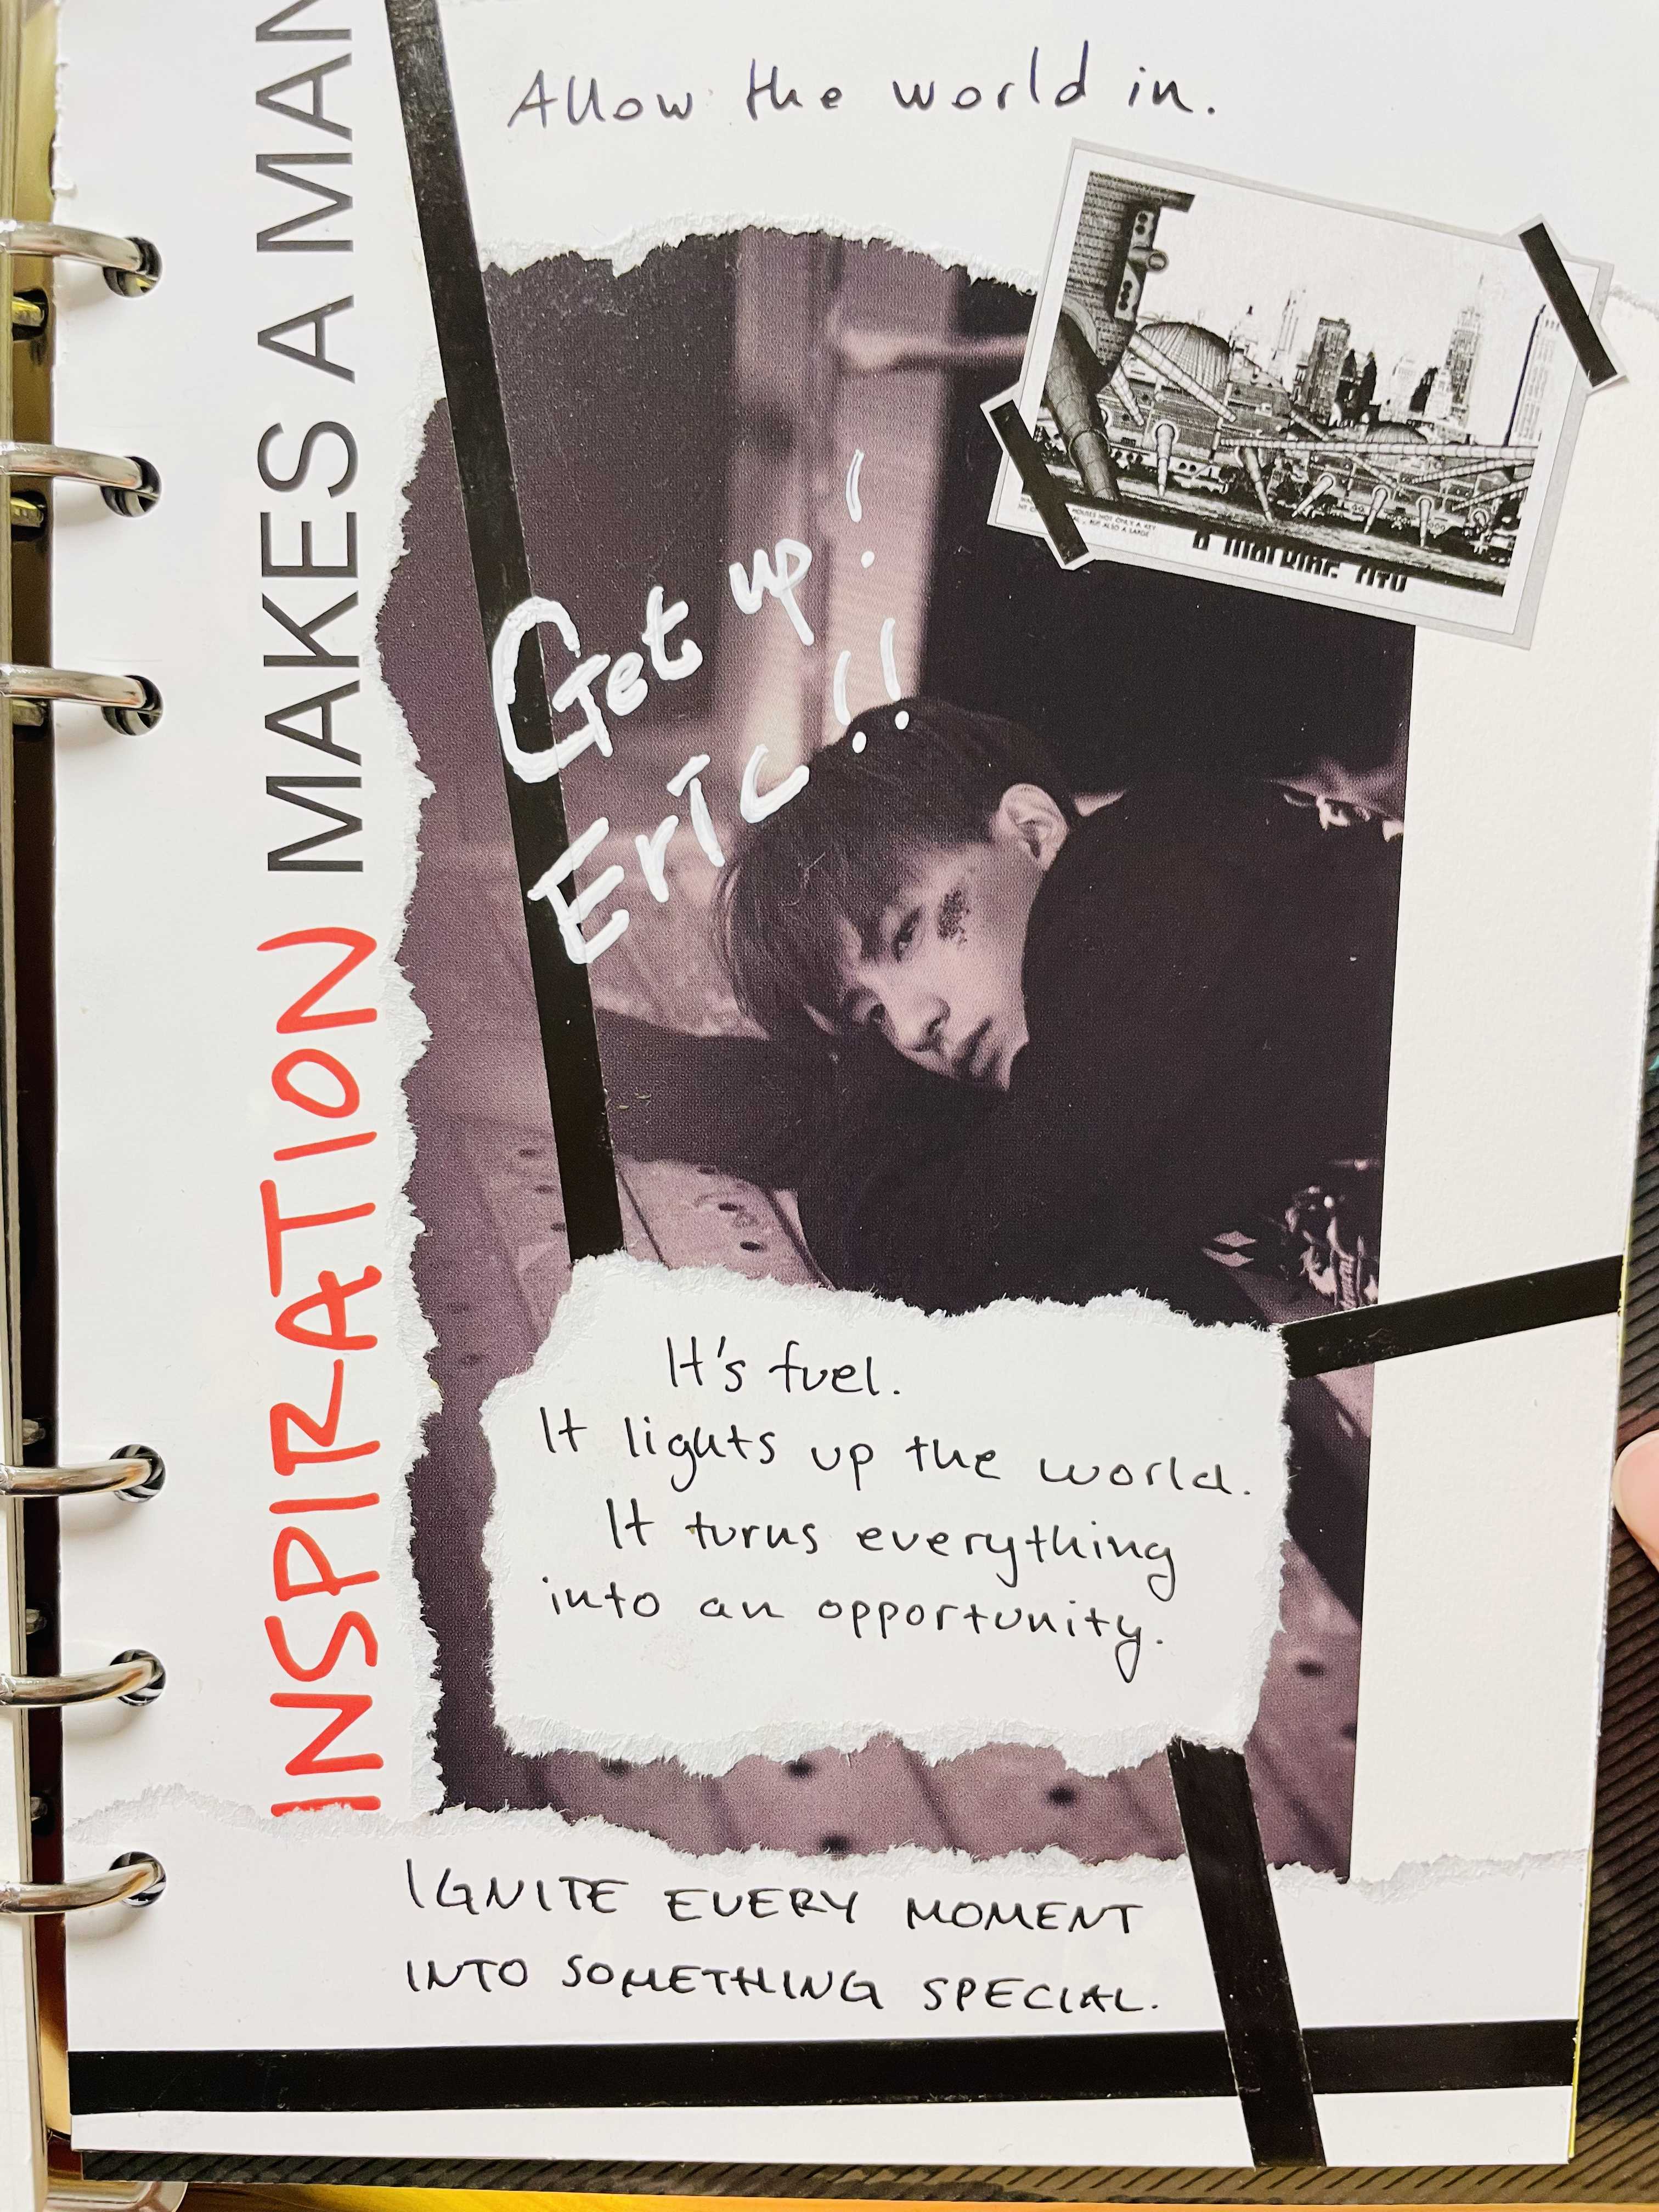 Allow the world in.
INSPIRATION MAKES A MAN
HOUSES NOT ONLY A KEY
BUT ALSO A LARGE
Get up!
Eric!!
It's fuel.
It lights up the world.
It turns everything
into an opportunity.
IGNITE EVERY MOMENT
INTO SOMETHING SPECIAL.